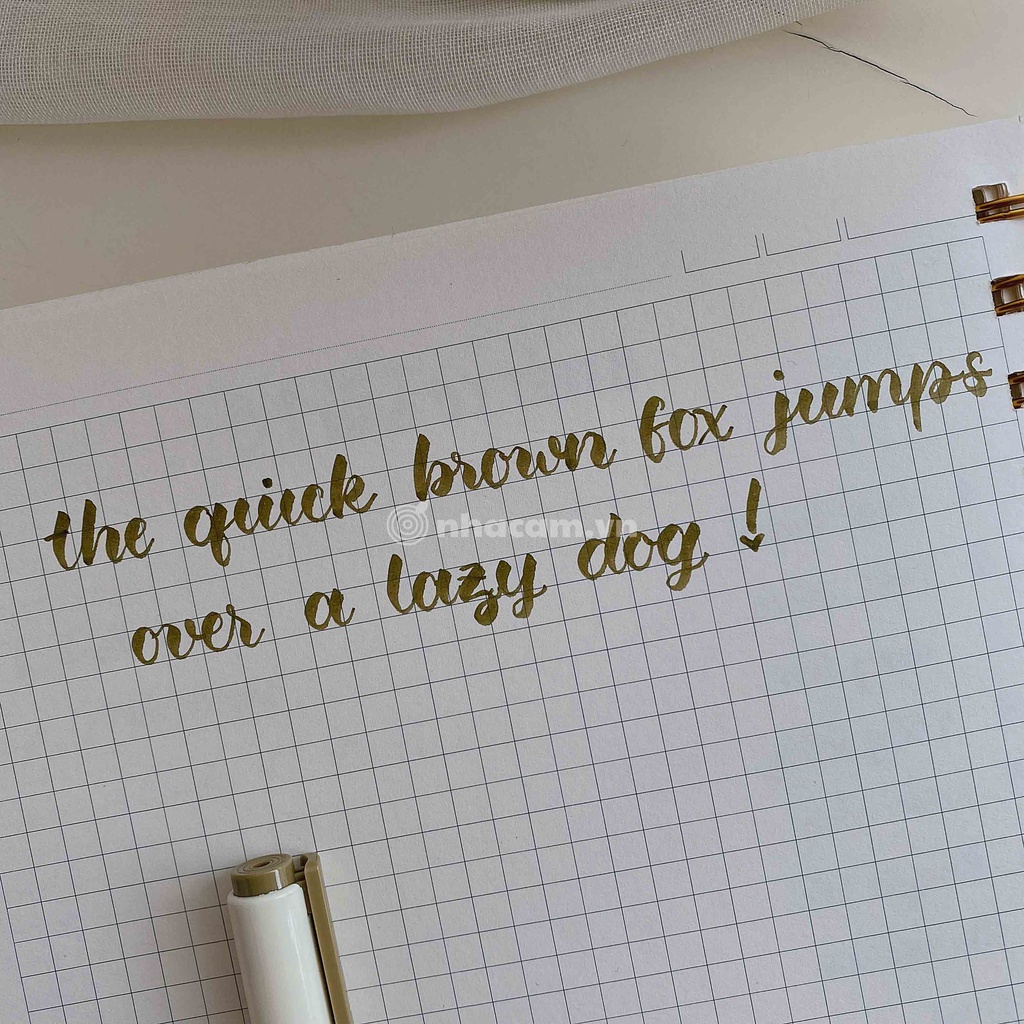 the quick brown fox jumps
over a lazy dog !
nhacam.vn